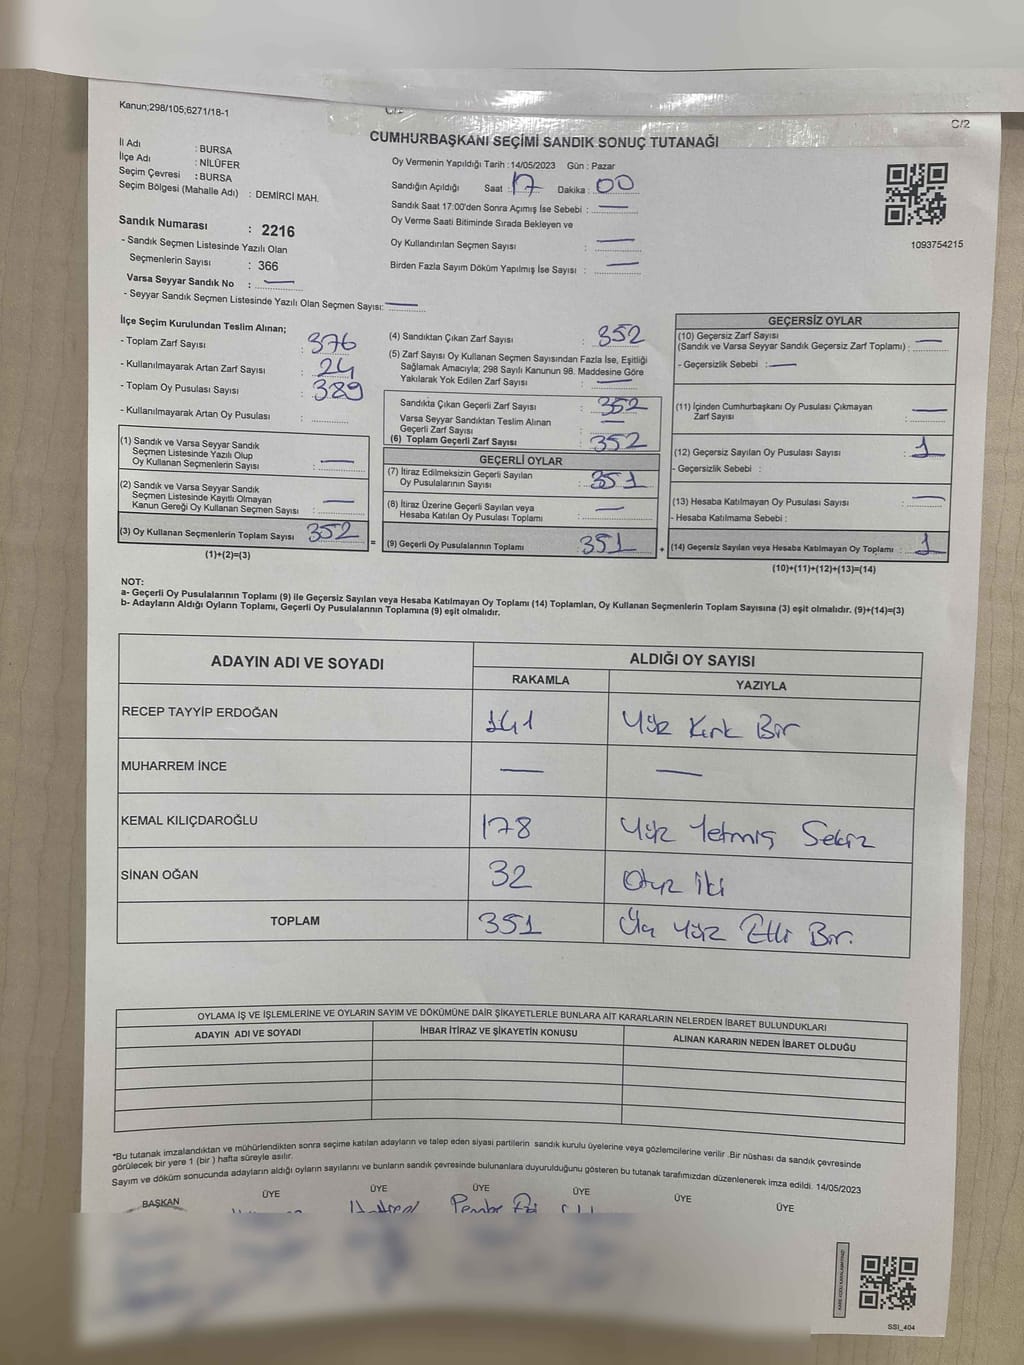 Kanun;298/105;6271/18-1
C/2
CUMHURBAŞKANI SEÇİMİ SANDIK SONUÇ TUTANAĞI
İl Adı : BURSA
İlçe Adı : NİLÜFER
Seçim Çevresi : BURSA
Seçim Bölgesi (Mahalle Adı) : DEMİRCİ MAH.
Oy Vermenin Yapıldığı Tarih : 14/05/2023 Gün : Pazar
Sandığın Açıldığı Saat : 17 Dakika : 00
Sandık Saat 17:00'den Sonra Açımış İse Sebebi : —
Oy Verme Saati Bitiminde Sırada Bekleyen ve
Oy Kullandırılan Seçmen Sayısı : —
Birden Fazla Sayım Döküm Yapılmış İse Sayısı : —
1093754215
Sandık Numarası : 2216
- Sandık Seçmen Listesinde Yazılı Olan
Seçmenlerin Sayısı : 366
Varsa Seyyar Sandık No : —
- Seyyar Sandık Seçmen Listesinde Yazılı Olan Seçmen Sayısı: —
İlçe Seçim Kurulundan Teslim Alınan;
- Toplam Zarf Sayısı : 376
- Kullanılmayarak Artan Zarf Sayısı : 24
- Toplam Oy Pusulası Sayısı : 389
- Kullanılmayarak Artan Oy Pusulası :
(1) Sandık ve Varsa Seyyar Sandık
Seçmen Listesinde Yazılı Olup
Oy Kullanan Seçmenlerin Sayısı : —
(2) Sandık ve Varsa Seyyar Sandık
Seçmen Listesinde Kayıtlı Olmayan
Kanun Gereği Oy Kullanan Seçmen Sayısı : —
(3) Oy Kullanan Seçmenlerin Toplam Sayısı : 352
(1)+(2)=(3)
(4) Sandıktan Çıkan Zarf Sayısı : 352
(5) Zarf Sayısı Oy Kullanan Seçmen Sayısından Fazla İse, Eşitliği
Sağlamak Amacıyla; 298 Sayılı Kanunun 98. Maddesine Göre
Yakılarak Yok Edilen Zarf Sayısı : —
Sandıkta Çıkan Geçerli Zarf Sayısı : 352
Varsa Seyyar Sandıktan Teslim Alınan
Geçerli Zarf Sayısı : —
(6) Toplam Geçerli Zarf Sayısı : 352
GEÇERLİ OYLAR
(7) İtiraz Edilmeksizin Geçerli Sayılan
Oy Pusulalarının Sayısı : 351
(8) İtiraz Üzerine Geçerli Sayılan veya
Hesaba Katılan Oy Pusulası Toplamı : —
= (9) Geçerli Oy Pusulalarının Toplamı : 351 +
GEÇERSİZ OYLAR
(10) Geçersiz Zarf Sayısı
(Sandık ve Varsa Seyyar Sandık Geçersiz Zarf Toplamı) : —
- Geçersizlik Sebebi : —
(11) İçinden Cumhurbaşkanı Oy Pusulası Çıkmayan
Zarf Sayısı : —
(12) Geçersiz Sayılan Oy Pusulası Sayısı : 1
- Geçersizlik Sebebi :
(13) Hesaba Katılmayan Oy Pusulası Sayısı : —
- Hesaba Katılmama Sebebi :
(14) Geçersiz Sayılan veya Hesaba Katılmayan Oy Toplamı : 1
(10)+(11)+(12)+(13)=(14)
NOT:
a- Geçerli Oy Pusulalarının Toplamı (9) ile Geçersiz Sayılan veya Hesaba Katılmayan Oy Toplamı (14) Toplamları, Oy Kullanan Seçmenlerin Toplam Sayısına (3) eşit olmalıdır. (9)+(14)=(3)
b- Adayların Aldığı Oyların Toplamı, Geçerli Oy Pusulalarının Toplamına (9) eşit olmalıdır.
ADAYIN ADI VE SOYADI ALDIĞI OY SAYISI
RAKAMLA YAZIYLA
RECEP TAYYİP ERDOĞAN 141 Yüz Kırk Bir
MUHARREM İNCE — —
KEMAL KILIÇDAROĞLU 178 Yüz Yetmiş Sekiz
SİNAN OĞAN 32 Otuz İki
TOPLAM 351 Üç Yüz Elli Bir.
OYLAMA İŞ VE İŞLEMLERİNE VE OYLARIN SAYIM VE DÖKÜMÜNE DAİR ŞİKAYETLERLE BUNLARA AİT KARARLARIN NELERDEN İBARET BULUNDUKLARI
ADAYIN ADI VE SOYADI İHBAR İTİRAZ VE ŞİKAYETİN KONUSU ALINAN KARARIN NEDEN İBARET OLDUĞU
*Bu tutanak imzalandıktan ve mühürlendikten sonra seçime katılan adayların ve talep eden siyasi partilerin sandık kurulu üyelerine veya gözlemcilerine verilir .Bir nüshası da sandık çevresinde
görülecek bir yere 1 (bir ) hafta süreyle asılır.
Sayım ve döküm sonucunda adayların aldığı oyların sayılarını ve bunların sandık çevresinde bulunanlara duyurulduğunu gösteren bu tutanak tarafımızdan düzenlenerek imza edildi. 14/05/2023
BAŞKAN ÜYE ÜYE ÜYE ÜYE ÜYE ÜYE
Pembe
SSI_404